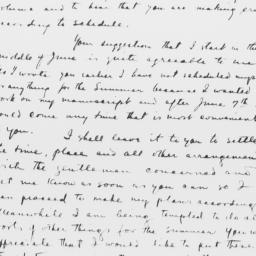 volume and to hear that you are making pro
according to schedule.
Your suggestion that I start in the
middle of June is quite agreeable to me
As I wrote you earlier I have not scheduled mys
anything for the Summer because I wanted
work on my manuscript and after June 7th
would come any time that is most convenient
you. I shall leave it to you to settle
the time, place and all other arrangemen
with the gentleman concerned and
let me know as soon as you can so I
can proceed to make my plans according
Meanwhile I am being tempted to do all
sorts of other things for the Summer. You w
appreciate that I would like to put these